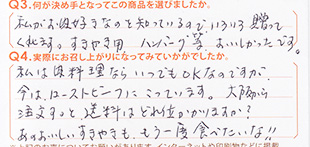 Q3.何が決め手となってこの商品を選びましたか。
私がお肉好きなのを知っているので、いろいろ贈って
くれます。すきやき用、ハンバーグ等、おいしかったです。
Q4.実際にお召し上がりになってみていかがでしたか。
私は肉料理ならいつでもOKなのですが、
今は、ローストビーフにこっています。大阪から
注文すると送料はどれ位かかりますか?
あのおいしいすきやきも、もう一度食べたいな!!